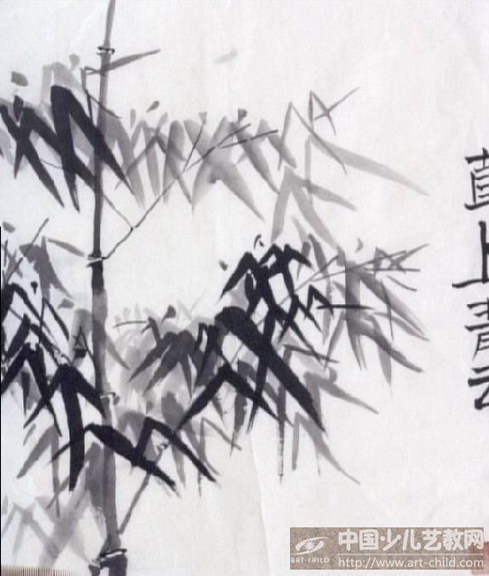 直上青云
中国少儿艺教网
ART-CHILD
http://www.art-child.com